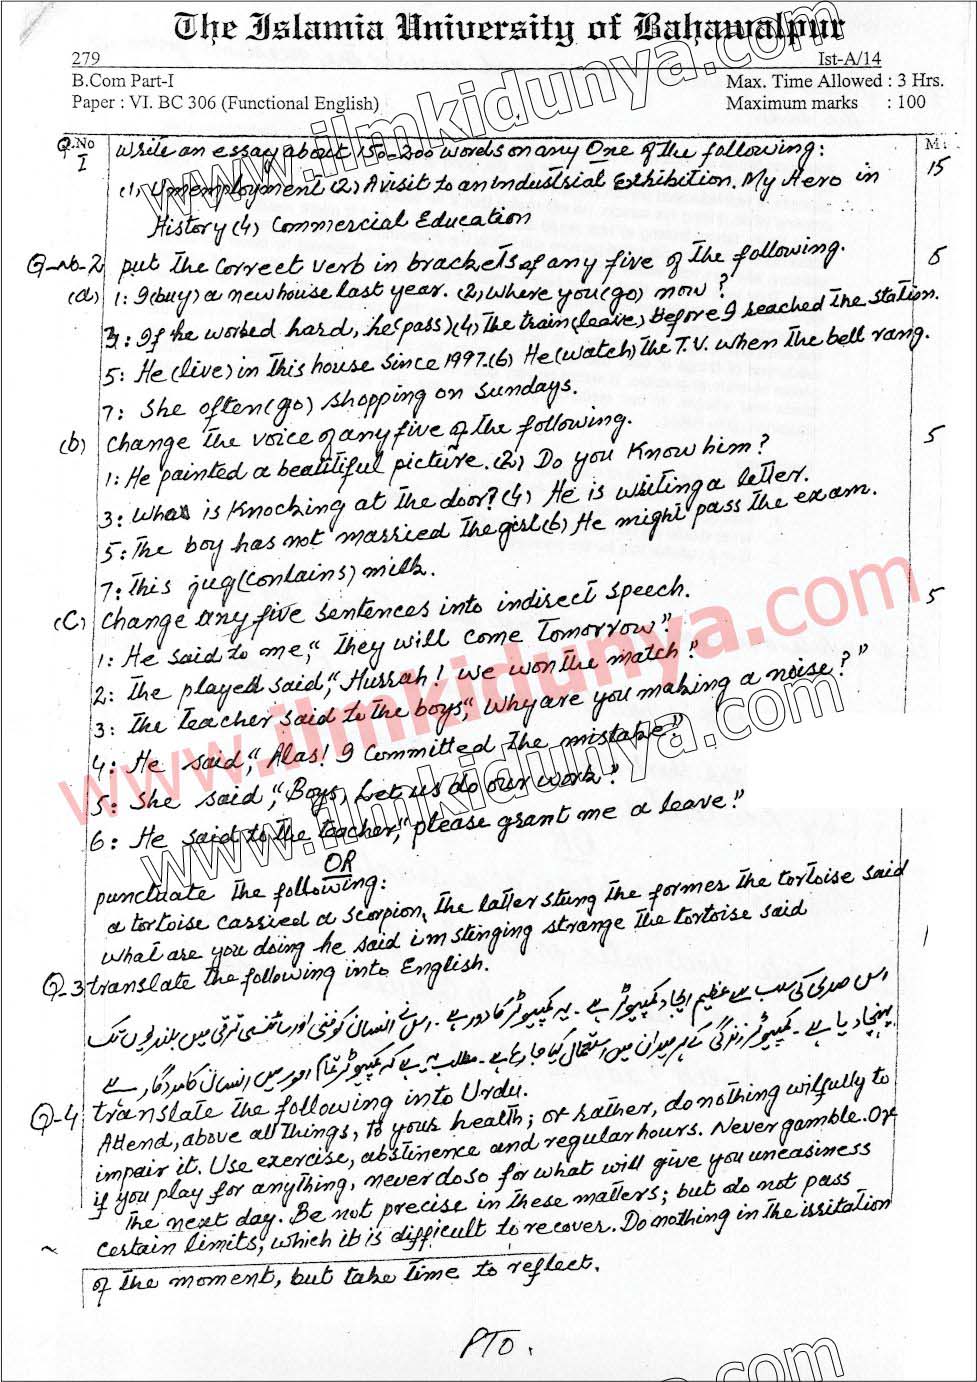 The Islamia University of Bahawalpur
279 Ist-A/14
B.Com Part-I Max. Time Allowed : 3 Hrs.
Paper : VI. BC 306 (Functional English) Maximum marks : 100
Q.No I write an essay about 150-200 words on any One of the following: M: 15
(1) Unemployment (2) A visit to an Industrial Exhibition. My Hero in
History (4) Commercial Education
Q-No-2 put the correct verb in brackets of any five of the following.
(a) 1: I (buy) a new house last year. (2) Where you (go) now?
3: If he worked hard, he (pass) (4) The train (leave) before I reached the station.
5: He (live) in this house since 1997. (6) He (watch) the T.V. when the bell rang.
7: She often (go) shopping on Sundays.
(b) Change the voice of any five of the following. 5
1: He painted a beautiful picture. (2) Do you know him?
3: Who is knocking at the door? (4) He is writing a letter.
5: The boy has not married the girl (6) He might pass the exam.
7: This jug (contains) milk.
(C) Change any five sentences into indirect speech. 5
1: He said to me, "They will come tomorrow".
2: The player said, "Hurrah! we won the match!"
3: The teacher said to the boys, "Why are you making a noise?"
4: He said, "Alas! I committed the mistake."
5: She said, "Boys, Let us do our work."
6: He said to the teacher, "please grant me a leave."
OR
punctuate the following:
a tortoise carried a scorpion, the latter stung the former the tortoise said
what are you doing he said im stinging strange the tortoise said
Q-3 translate the following into English.
اس صدی کی سب سے عظیم ایجاد کمپیوٹر ہے۔ یہ کمپیوٹر کا دور ہے۔ اس نے انسان کو فنی اور سائنسی ترقی میں بلندیوں تک
پہنچا دیا ہے۔ کمپیوٹر زندگی کے ہر میدان میں استعمال کیا جا رہا ہے۔ مطلب یہ ہے کہ کمپیوٹر تمام امور میں انسان کا مددگار ہے
Q-4 translate the following into Urdu.
Attend, above all things, to your health; or rather, do nothing wilfully to
impair it. Use exercise, abstinence and regular hours. Never gamble. Or
if you play for anything, never do so for what will give you uneasiness
the next day. Be not precise in these matters; but do not pass
certain limits, which it is difficult to recover. Do nothing in the irritation
of the moment, but take time to reflect.
PTO.
www.ilmkidunya.com
www.ilmkidunya.com
www.ilmkidunya.com